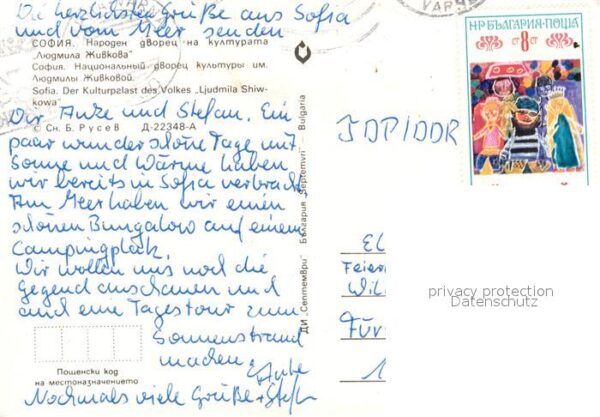 Die herzlichsten Grüße aus Sofia
und vom Meer senden
СОФИЯ. Народен дворец на културата
„Людмила Живкова"
София. Национальный дворец культуры им.
Людмилы Живковой.
Sofia. Der Kulturplast des Volkes „Ljudmila Shiw-
kowa"
Dir Anke und Stefan. Ein
© Сн. Б. Русев Д-22348-А
paar wunderschöne Tage mit
Sonne und Wärme haben
wir bereits in Sofia verbracht
Am Meer haben wir einen
schönen Bungalow auf einem
Campingplatz.
Wir wollen uns noch die
Gegend anschauen und
und eine Tagestour zum
Sonnenstrand
machen
Anke
Пощенски код
на местоназначението
Nochmals viele Grüße + Stefan
ДИ „Септември" България „Septemvri" — Bulgaria
ВАРНЕ
НР БЪЛГАРИЯ·ПОЩА
8
JDP/DDR
El
Feier
Wil
Für
1
privacy protection
Datenschutz